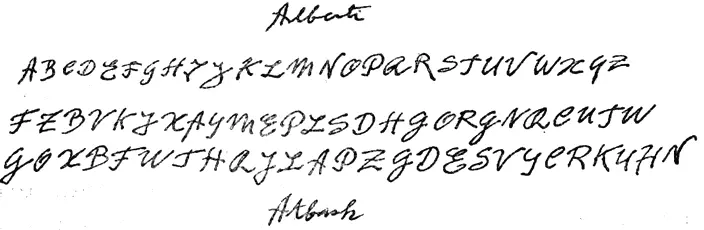 Alberti
ABCDEFGHIJKLMNOPQRSTUVWXYZ
FZBVKIXAYMEPLSDHJORGNQCUTW
GOXBFWTHQILAPZJDESVYCRKUHN
Atbash